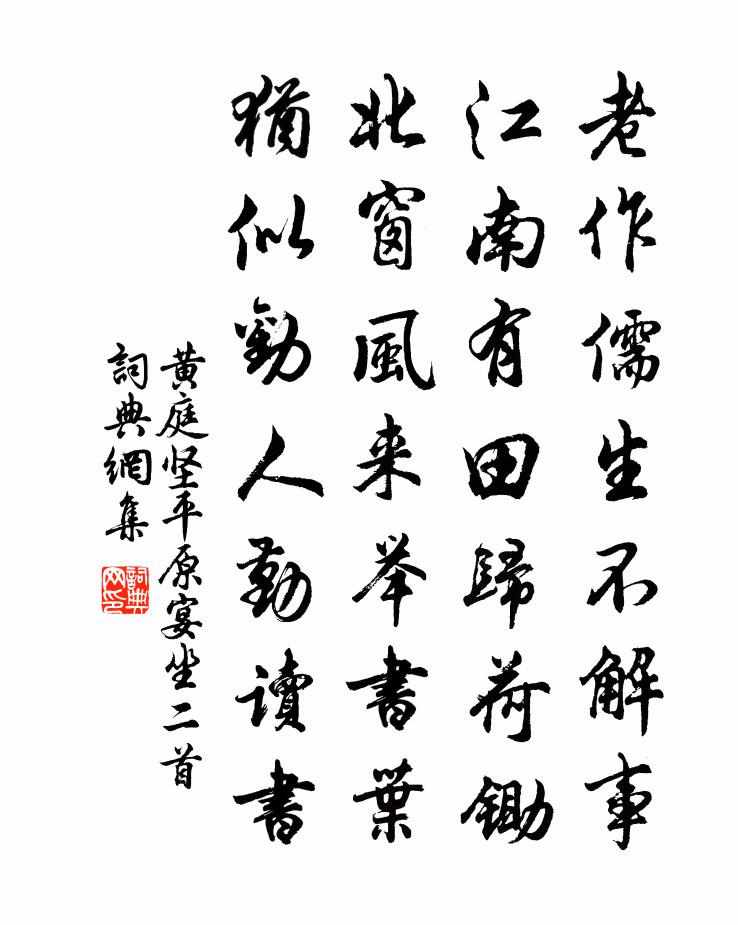 老作儒生不解事
江南有田歸荷鋤
北窗風来举書葉
猶似勸人勤讀書
黄庭坚平原宴坐二首
詞典網集
詞典网印